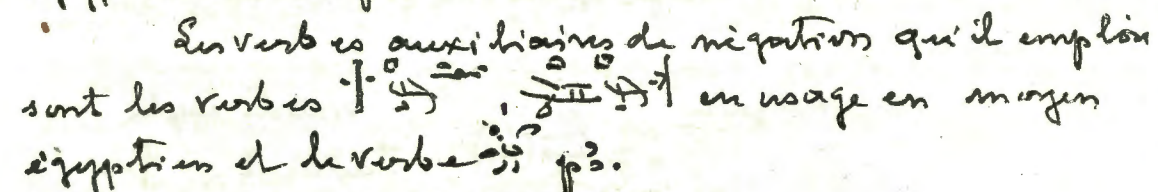 Les verbes auxiliaires de négations qu'il emploie
sont les verbes , en usage en moyen
égyptien et le verbe p3.